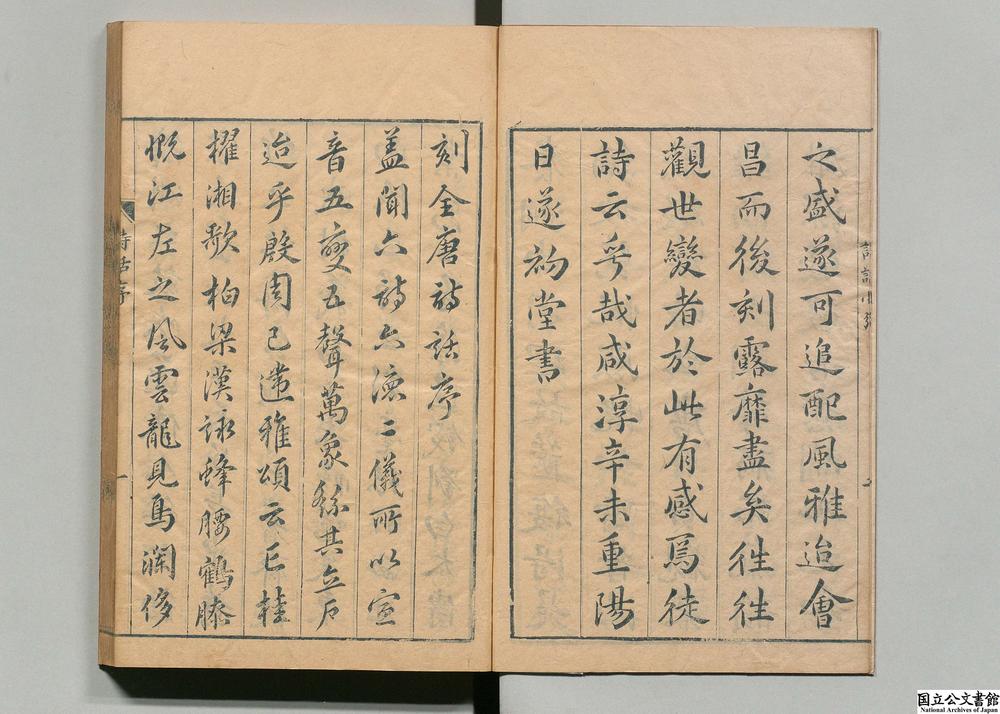 之盛遂可追配風雅迨會
昌而後刻露靡盡矣往往
觀世變者於此有感焉徒
詩云乎哉咸淳辛未重陽
日遂初堂書
刻全唐詩話序
蓋聞六詩六德二儀所以宣
音五變五聲萬象繇其立
迨乎殷周已遠雅頌云亡桂
櫂湘歌柏梁漢詠蜂腰鶴膝
慨江左之風雲龍見鳥瀾侈
詩話序
一
国立公文書館
National Archives of Japan